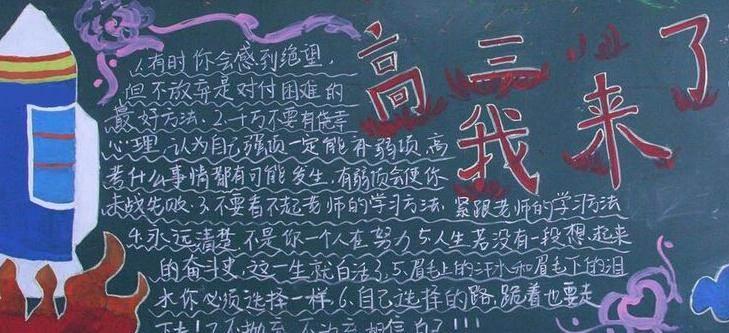 高三
我来了
1.有时你会感到绝望,
但不放弃是对付困难的
最好方法.2.千万不要有侥幸
心理.认为自己强项一定能补弱项.高
考什么事情都有可能发生.有弱项会使你
未战先败.3.不要看不起老师的学习方法.紧跟老师的学习方法
4.永远清楚不是你一个人在努力5.人生若没有一段想起来
的奋斗史.这一生就白活了.5.眉毛上的汗水和眉毛下的泪
水你必须选择一样.6.自己选择的路.跪着也要走
下去!7.不抛弃 不放弃 相信自己!!!